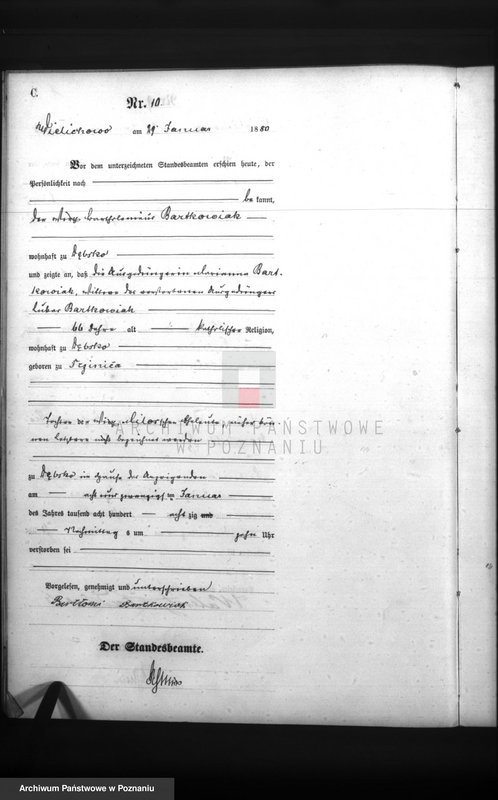 C.
Nr. 10.
Wielichowo am 29 Januar 1880
Vor dem unterzeichneten Standesbeamten erschien heute, der
Persönlichkeit nach
be kannt,
der Bartholomäus Bartkowiak
wohnhaft zu Dębsko
und zeigte an, daß die Ausgedingerin Marianna Bart-
kowiak, Wittwe des verstorbenen Ausgedingers
Bartkowiak
66 Jahre alt katholischer Religion,
wohnhaft zu Dębsko
geboren zu
Tochter der Eheleute, näher kön-
nen letztere nicht bezeichnet werden
zu Dębsko im Hause des Anzeigenden
am acht und zwanzigsten Januar
des Jahres tausend acht hundert acht zig und
Nachmittag s um zehn Uhr
verstorben sei
Vorgelesen, genehmigt und unterschrieben
Bartkowiak
Der Standesbeamte.
ARCHIWUM PAŃSTWOWE
W POZNANIU
Archiwum Państwowe w Poznaniu